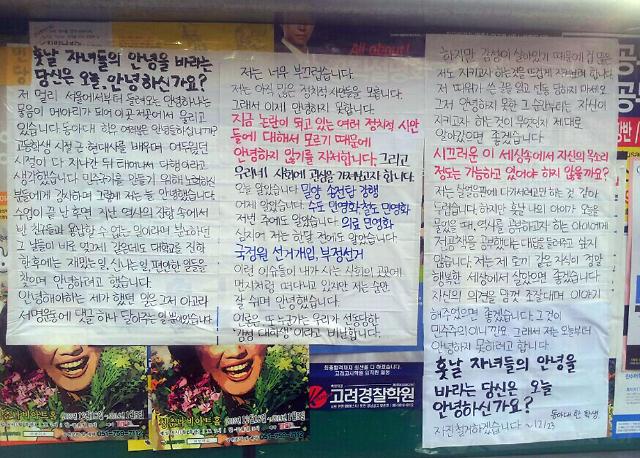 훗날 자녀들의 안녕을 바라는
당신은 오늘, 안녕하신가요?
저 멀리 서울에서부터 들려오는 안녕하냐는
물음이 메아리가 되어 이곳 저곳에서 울리고
있습니다. 동아대 학우 여러분 안녕들하십니까?
고등학생 시절 근현대사를 배우며 어두웠던
시절이 다 지나간 뒤 태어나서 다행이라고
생각했습니다. 민주국가를 만들기 위해 노력하신
분들에게 감사하며 그렇게 저는 늘 안녕했습니다.
수업이 끝난 후면 지난 역사의 격랑 속에서
그 날들이 바로 엊그제 같은데도 대학교를 진학
한 후에는 재밌는 일, 신나는 일, 편안한 일들을
찾으며 안녕하려고 했습니다.
안녕해야하는 제가 했던 일은 그저 아고라
서명운동에 댓글 하나 달아주는 일 뿐이었습니다.
저는 너무 부끄럽습니다.
저는 아직 많은 정치적 사안들을 모릅니다.
그래서 이제 안녕하지 못합니다.
지금 논란이 되고 있는 여러 정치적 사안
들에 대해서 모르기 때문에
안녕하지 않기를 자처합니다. 그리고
우리네 사회에 관심을 가져보고자 합니다.
오늘 알았습니다 밀양 송전탑 강행
어제 알았습니다. 수도 민영화, 철도 민영화
저번 주에도 알았습니다 의료 민영화
심지어 저는 한달 전에도 알았습니다
국정원 선거개입, 부정선거
이런 이슈들이 내가 사는 사회의 곳곳에
먼지처럼 떠다니고 있지만 저는 숨만
잘 쉬며 안녕했습니다.
이곳은 또 누군가는 우리가 선동당한
'감성 대학생'이라고 비난합니다.
하지만 감성이 살아있기 때문에 겁 많은
저도 지키고자 하는 것을 뜨겁게 지켜보려 합니다.
저 따위가 쓴 글을 읽고 선동 당하지 마세요.
그저 안녕하지 못한 그 순간부터는 자신이
지키고자 하는 것이 무엇인지 제대로
알아갔으면 좋겠습니다.
시끄러운 이 세상속에서 자신의 목소리
정도는 가늠하고 있어야 하지 않을까요?
저는 살얼음판에 다가서려고만 하는 것 같아
두렵습니다. 하지만 훗날 나의 아이가 오늘을
물었을 때, 역사를 공부하고자 하는 아이에게
전공책을 공부했다는 대답을 들려주고 싶지
않습니다. 저는 제 토끼 같은 자식이 정말
행복한 세상에서 살았으면 좋겠습니다.
자신의 의견을 맘껏 조잘대며 이야기
해주었으면 좋겠습니다. 그것이
민주주의 아니던가요. 그래서 저는 오늘부터
안녕하지 못하려고 합니다.
훗날 자녀들의 안녕을
바라는 당신은 오늘
안녕하신가요?
동아대 한 학생
자진철거하겠습니다 ~12/23
All about!
고려경찰학원
051-759-7712